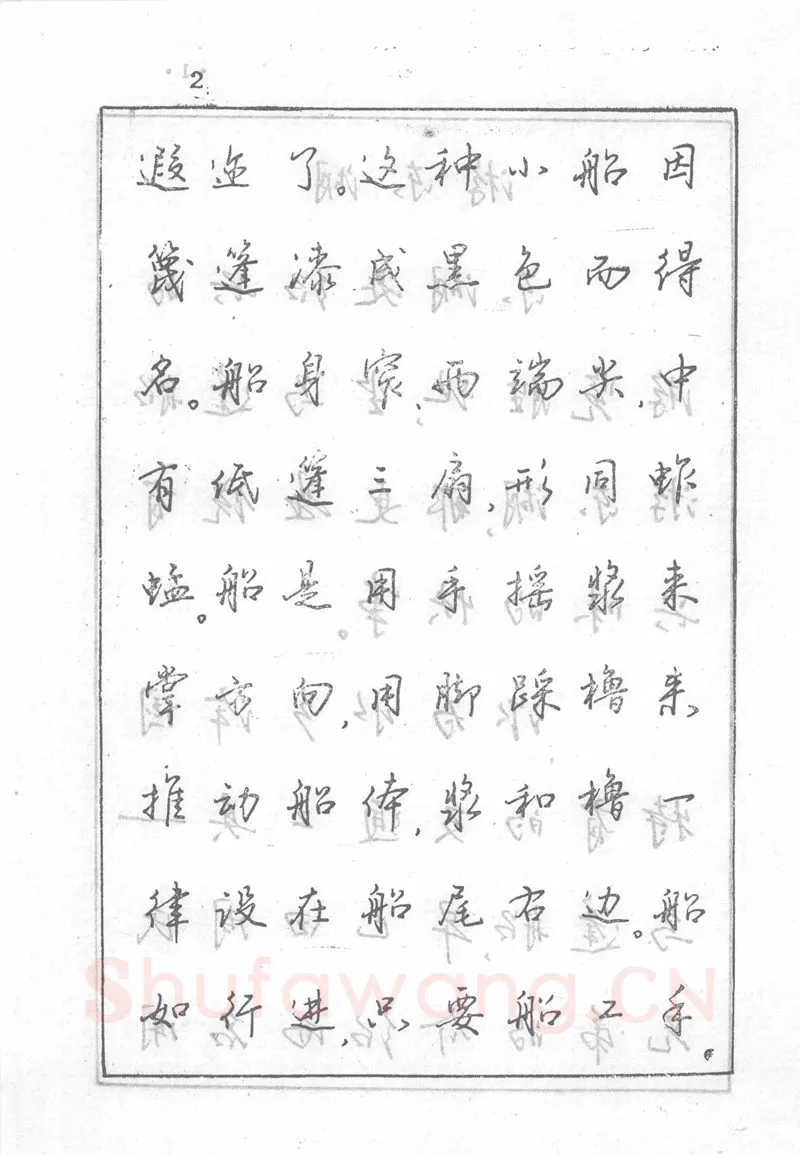 2
遐迩了。这种小船因
篾篷漆成黑色而得
名。船身窄,两端尖,中
有低篷三扇,形同蚱
蜢。船是用手摇桨来
掌方向,用脚踩橹来
推动船体,桨和橹一
律设在船尾右边。船
如行进,只要船工手
Shufawang.CN